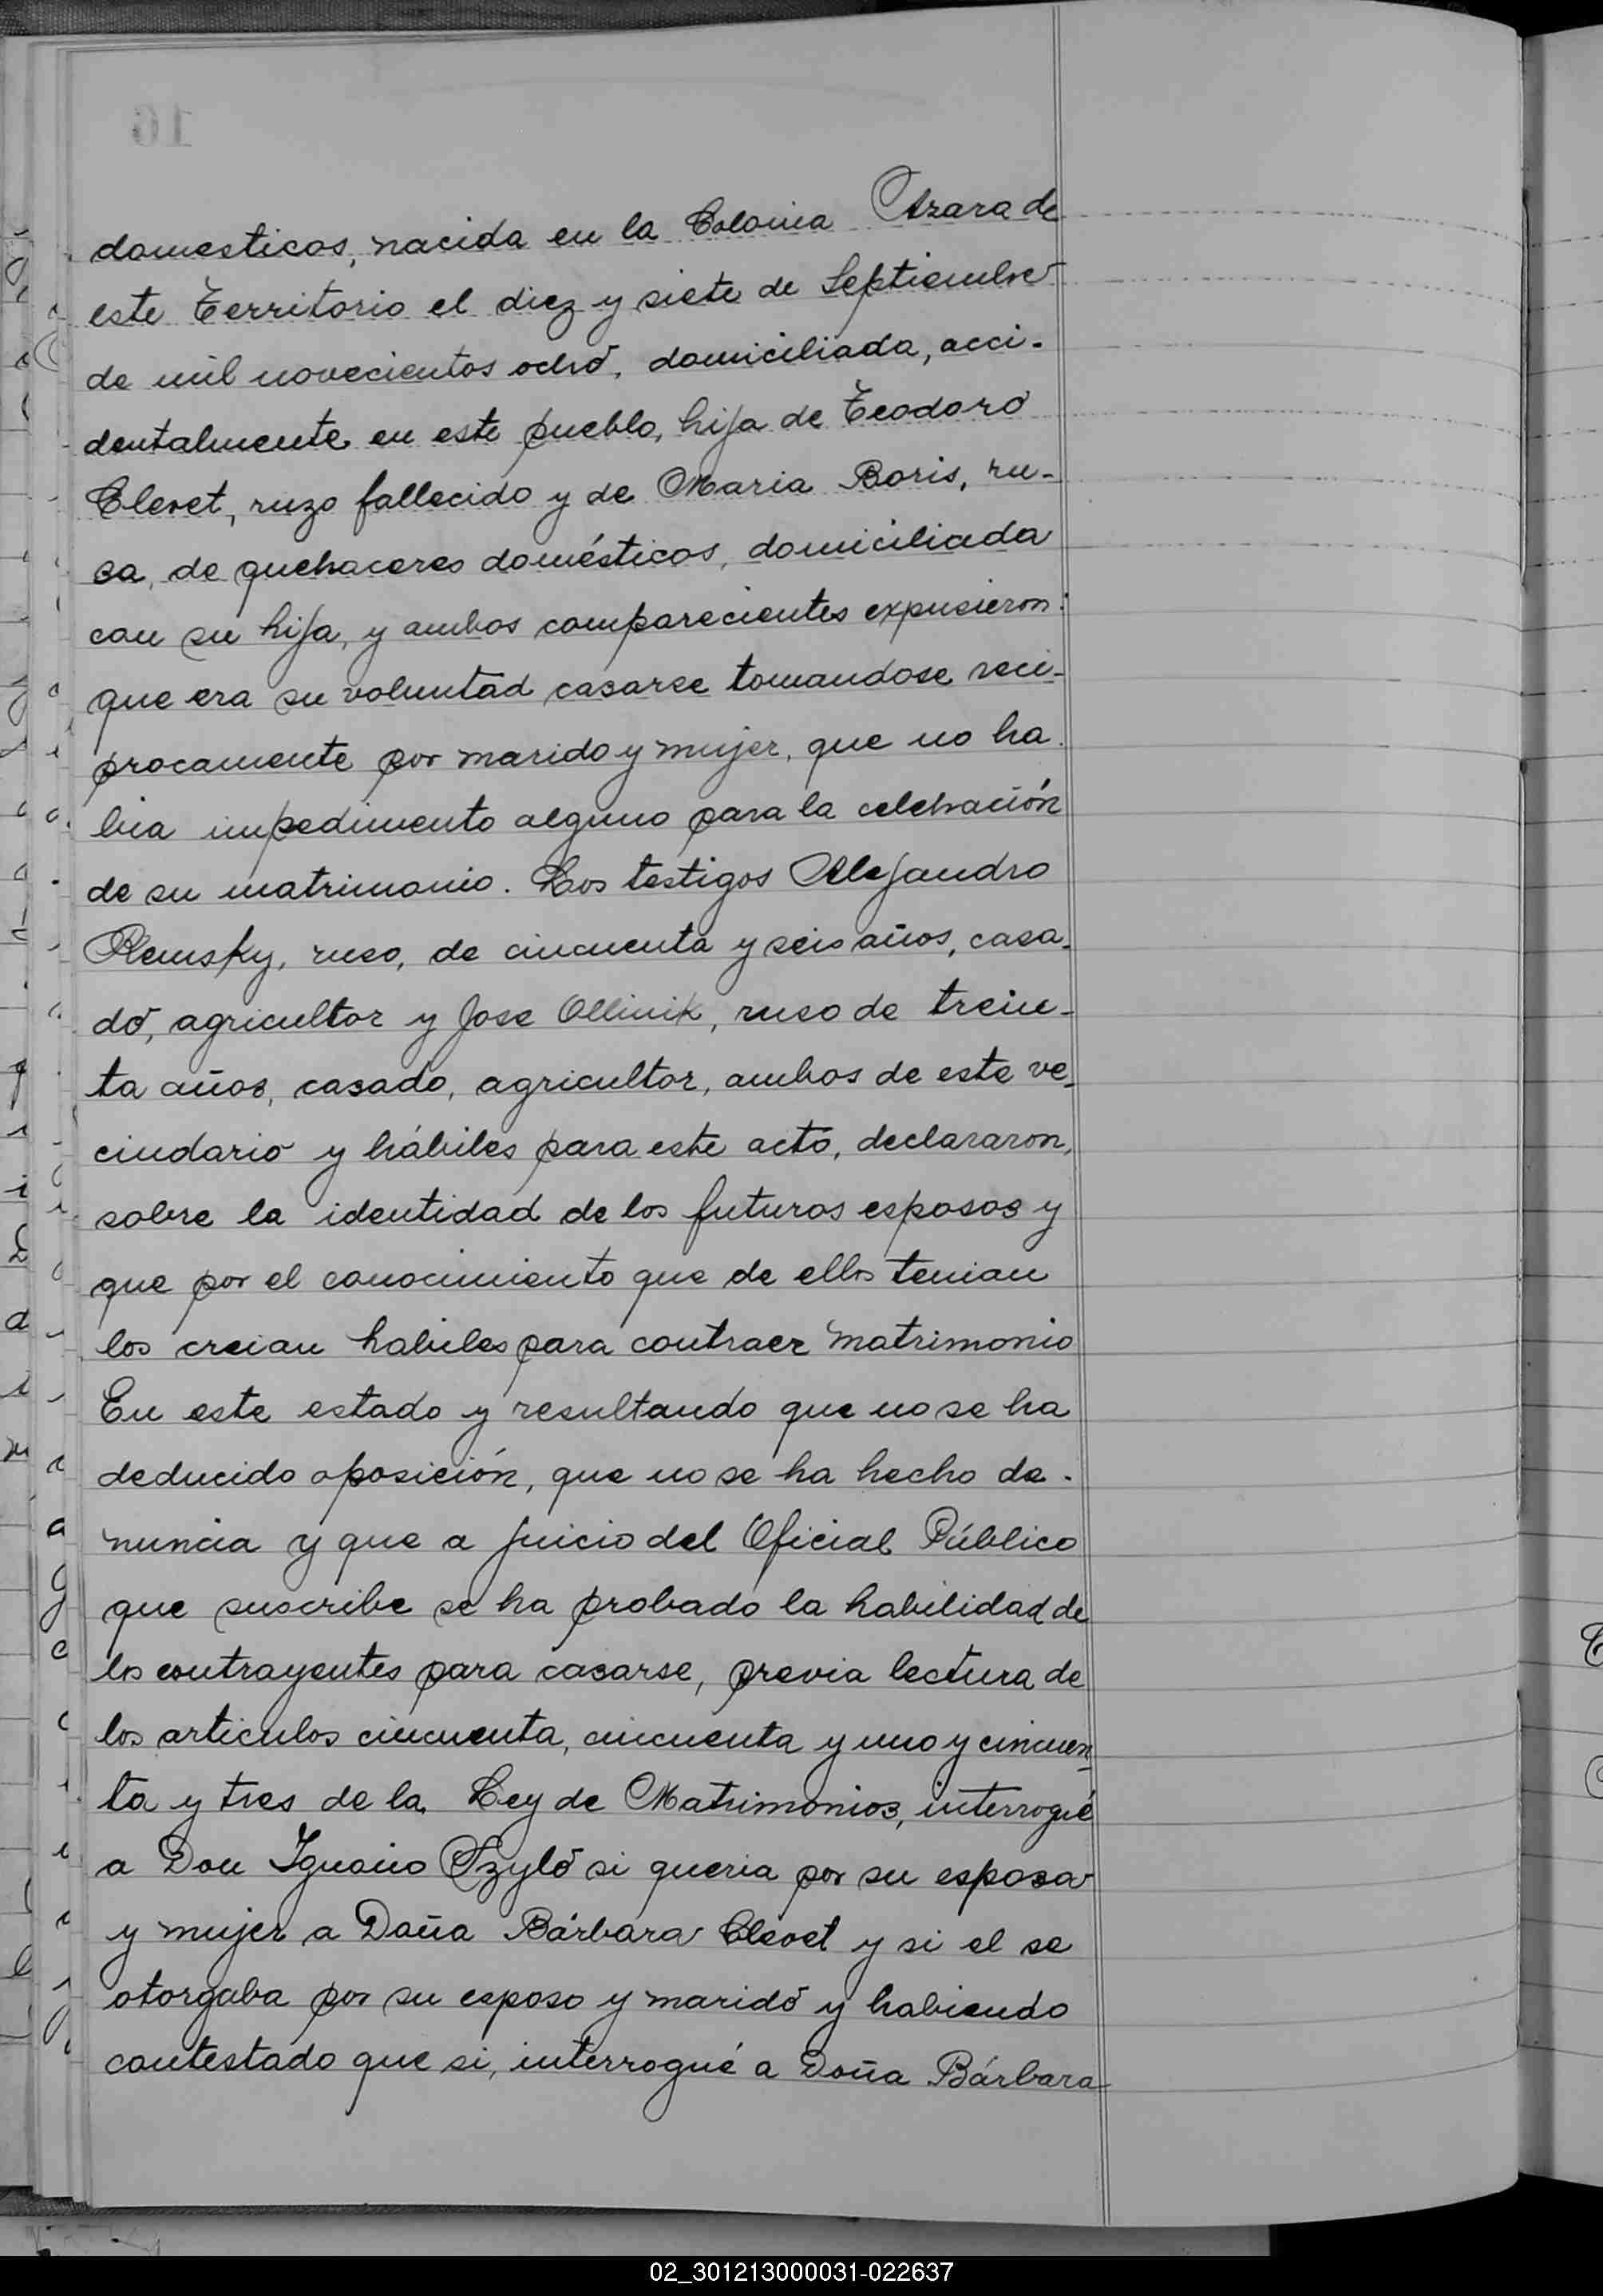 domesticos, nacida en la Colonia Azara de
este Territorio el diez y siete de Septiembre
de mil novecientos ocho, domiciliada, acci-
dentalmente en este pueblo, hija de Teodoro
Clevet, ruzo fallecido y de Maria Boris, ru-
sa, de quehaceres domésticos, domiciliada
con su hija, y ambos comparecientes expusieron:
que era su voluntad casarse tomandose reci-
procamente por marido y mujer, que no ha
bia impedimento alguno para la celebración
de su matrimonio. Los testigos Alejandro
Remsky, ruso, de cincuenta y seis años, casa-
do, agricultor y Jose Ollinik, ruso de trein-
ta años, casado, agricultor, ambos de este ve-
cindario y hábiles para este acto, declararon,
sobre la identidad de los futuros esposos y
que por el conocimiento que de ellos tenian
los creian habiles para contraer matrimonio
En este estado y resultando que no se ha
deducido oposición, que no se ha hecho de-
nuncia y que a juicio del Oficial Público
que suscribe se ha probado la habilidad de
los contrayentes para casarse, previa lectura de
los articulos cincuenta, cincuenta y uno y cincuen-
ta y tres de la Ley de Matrimonios, interrogué
a Don Ignacio Szyló si queria por su esposa
y mujer a Doña Bárbara Clevet y si el se
otorgaba por su esposo y marido y habiendo
contestado que si, interrogué a Doña Bárbara
02_301213000031-022637